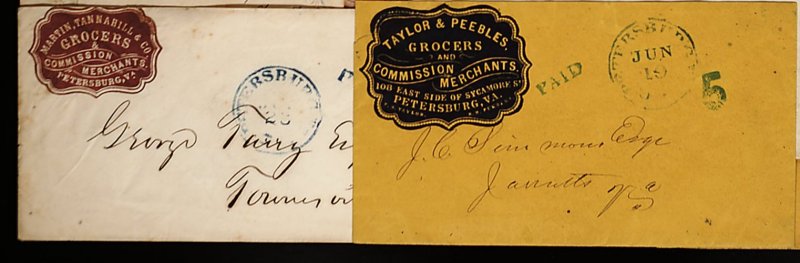 MARTIN, TANNAHILL & CO
GROCERS
&
COMMISSION
MERCHANTS.
PETERSBURG, VA.
PETERSBURG
George
TAYLOR & PEEBLES,
GROCERS
AND
COMMISSION
MERCHANTS.
108 EAST SIDE OF SYCAMORE ST
PETERSBURG, VA.
PAID
PETERSBURG
JUN
19
5
J. E. Simmons Esqr
Jarratts
Va